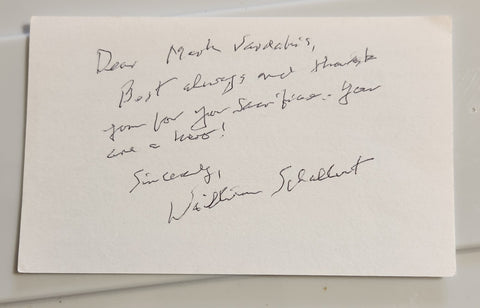 Dear Mark Vardakis,
Best always and thank
you for your sacrifice. You
are a hero!
Sincerely,
William Schallert